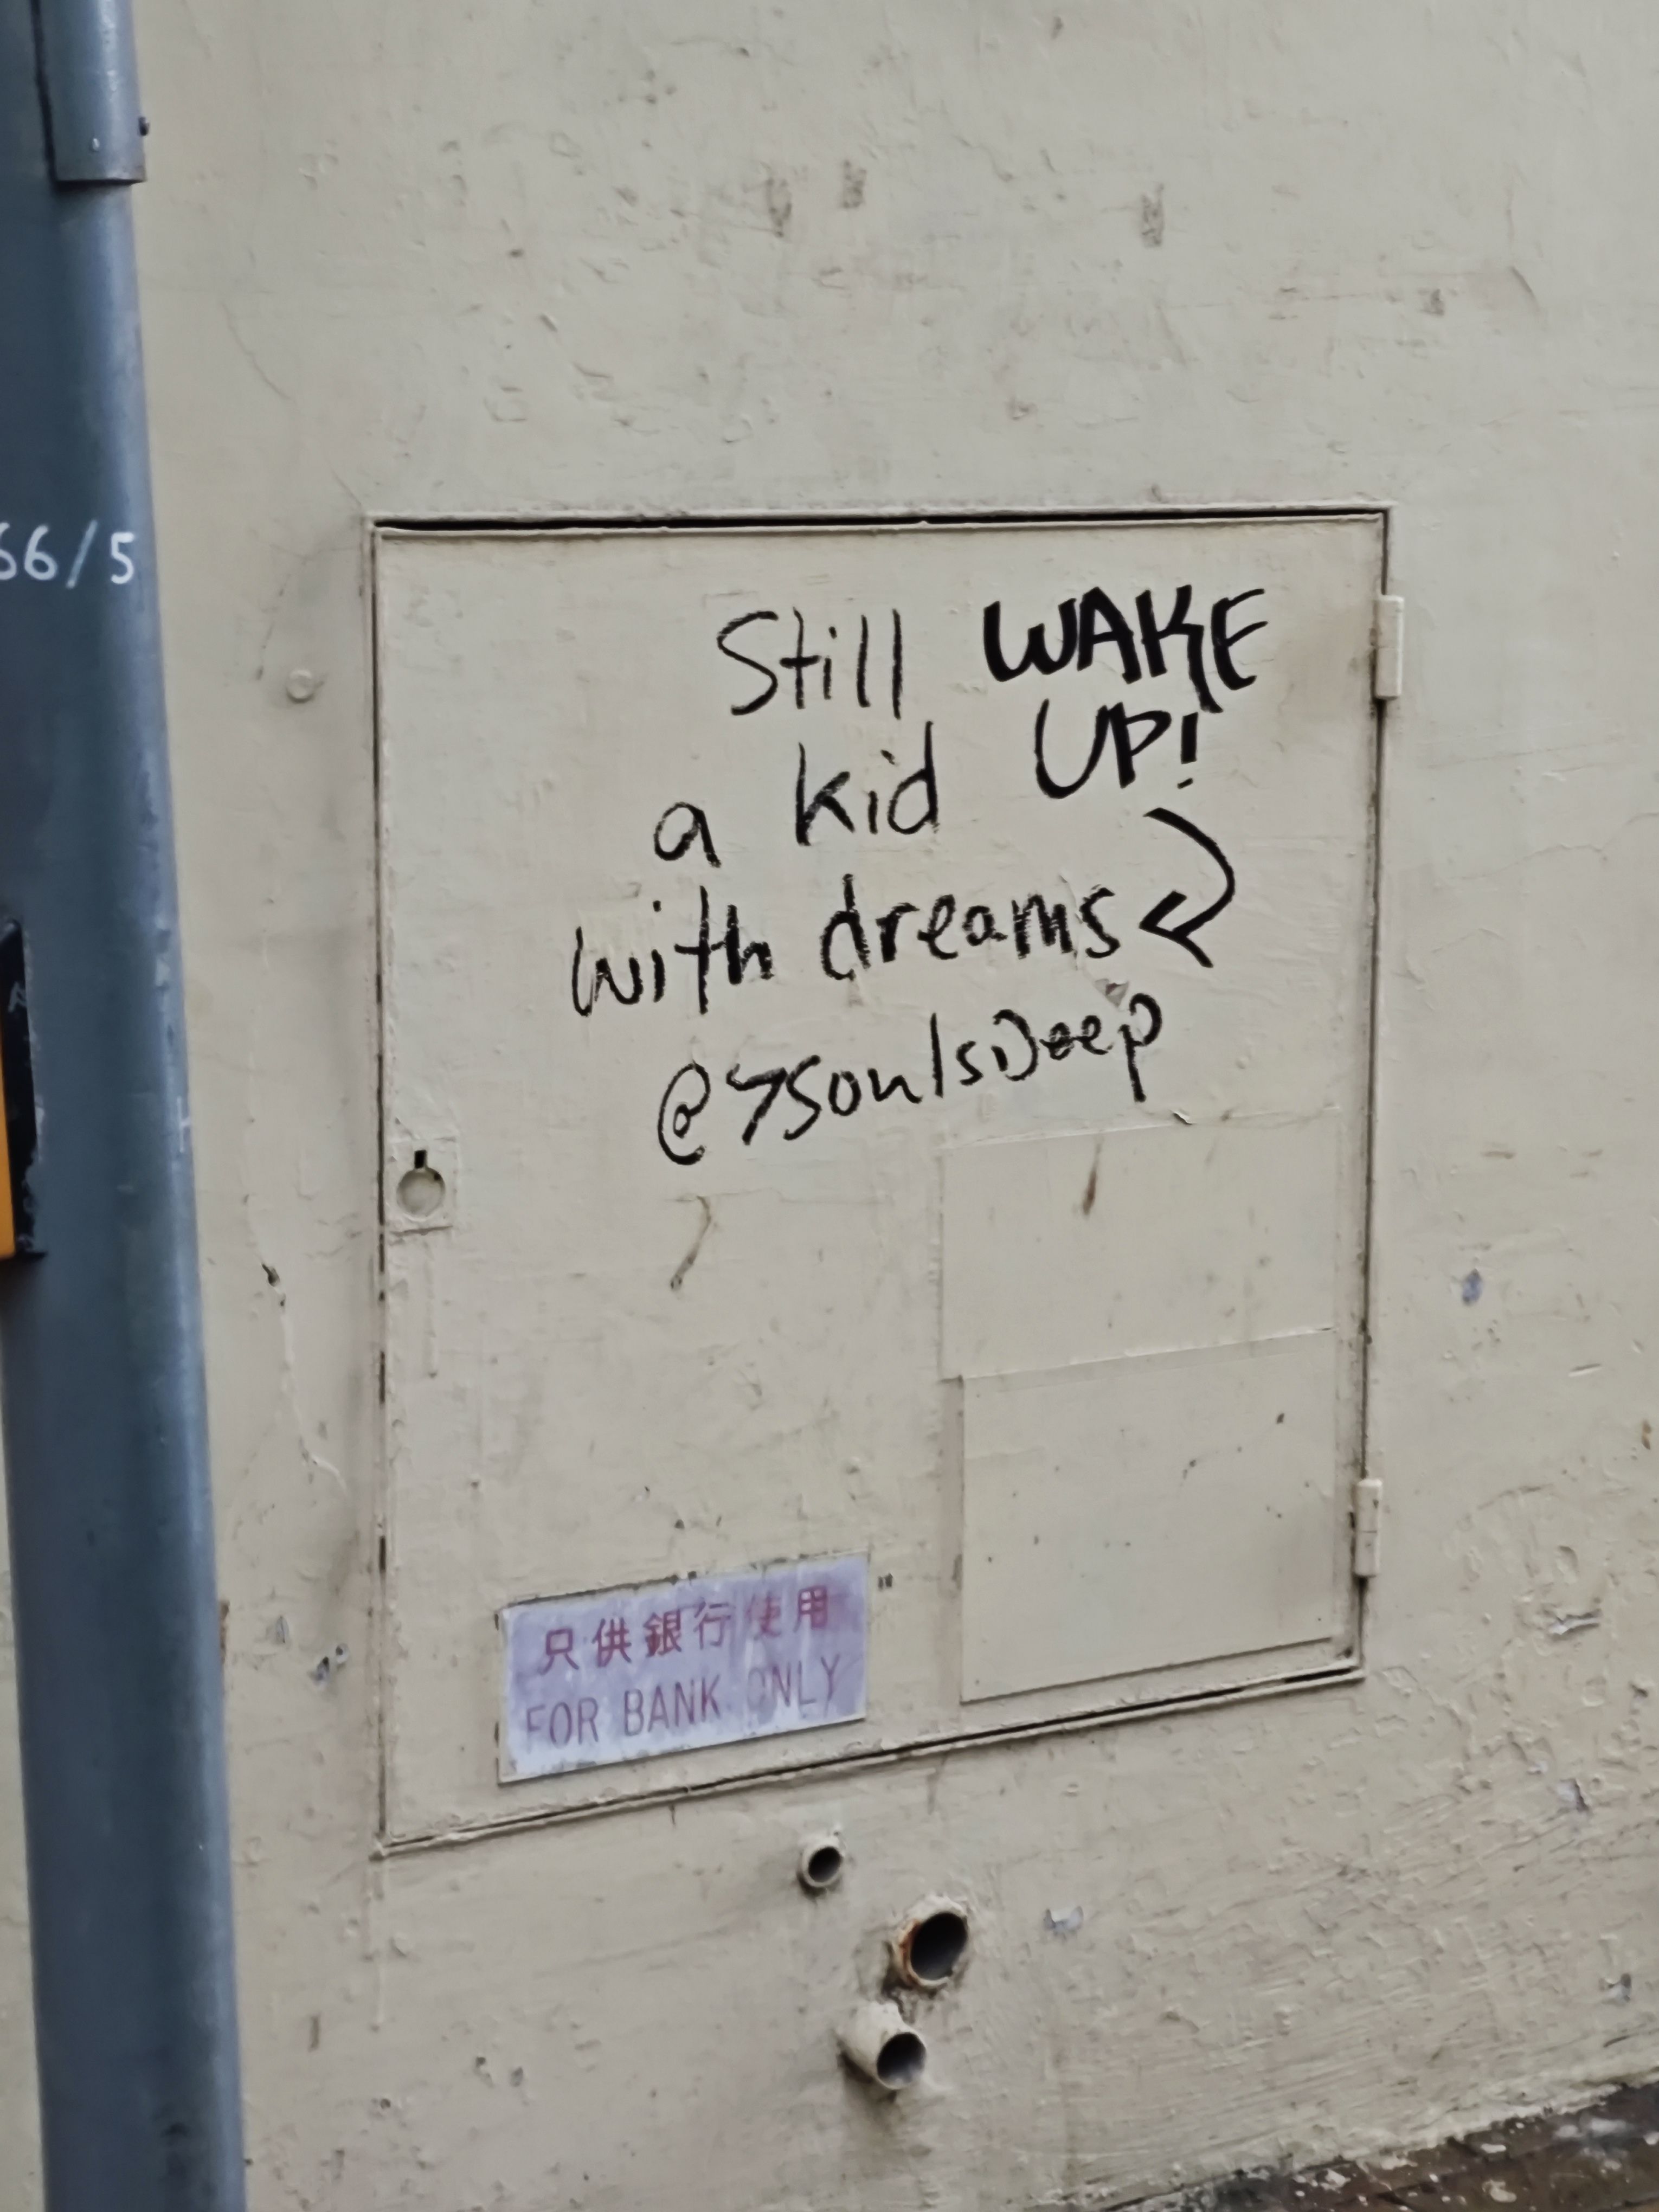 66/5
Still WAKE
a kid UP!
with dreams
@7SoulsDeep
只供銀行使用
FOR BANK ONLY